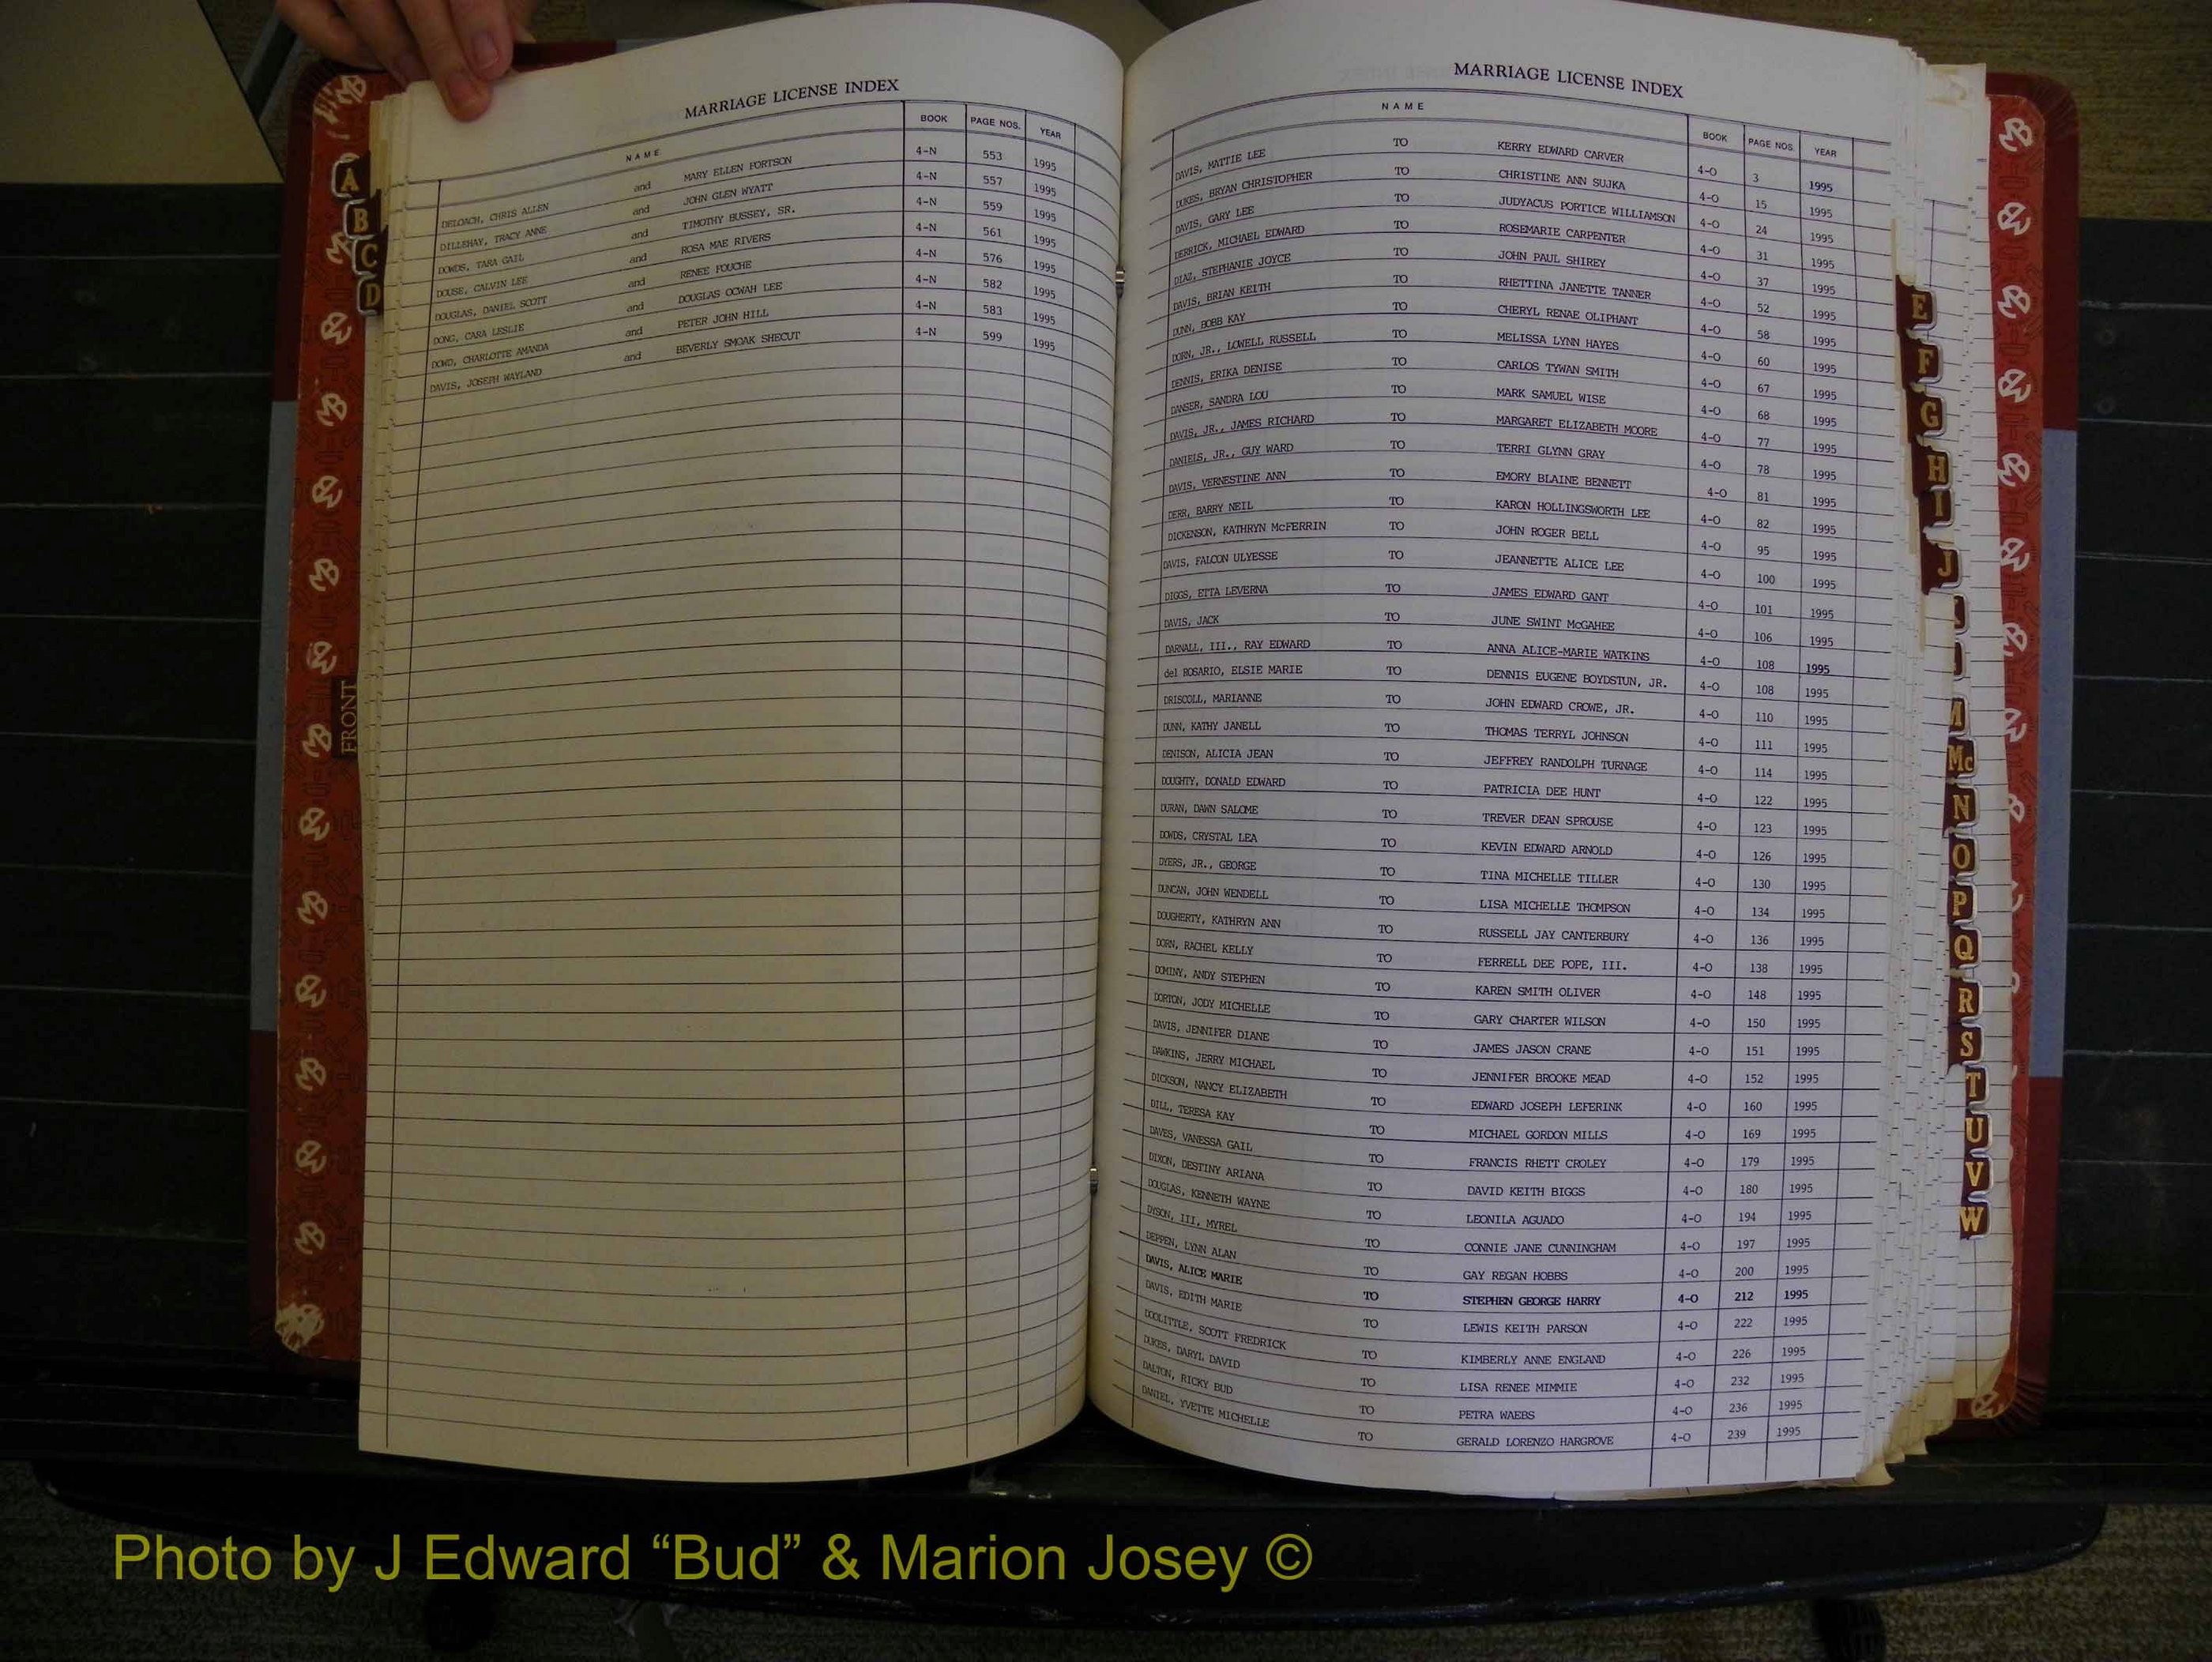 MARRIAGE LICENSE INDEX
NAME BOOK PAGE NOS. YEAR
DELOACH, CHRIS ALLEN and MARY ELLEN FORTSON 4-N 553 1995
DILLEHAY, TRACY ANNE and JOHN GLEN WYATT 4-N 557 1995
DOWDS, TARA GAIL and TIMOTHY BUSSEY, SR. 4-N 559 1995
DOUSE, CALVIN LEE and ROSA MAE RIVERS 4-N 561 1995
DOUGLAS, DANIEL SCOTT and RENEE FOUCHE 4-N 576 1995
DONG, CARA LESLIE and DOUGLAS OCWAH LEE 4-N 582 1995
DOWD, CHARLOTTE AMANDA and PETER JOHN HILL 4-N 583 1995
DAVIS, JOSEPH WAYLAND and BEVERLY SMOAK SHECUT 4-N 599 1995
A
B
C
D
FRONT
MARRIAGE LICENSE INDEX
NAME BOOK PAGE NOS. YEAR
DAVIS, MATTIE LEE TO KERRY EDWARD CARVER 4-O 3 1995
DUKES, BRYAN CHRISTOPHER TO CHRISTINE ANN SUJKA 4-O 15 1995
DAVIS, GARY LEE TO JUDYACUS PORTICE WILLIAMSON 4-O 24 1995
DERRICK, MICHAEL EDWARD TO ROSEMARIE CARPENTER 4-O 31 1995
DIAZ, STEPHANIE JOYCE TO JOHN PAUL SHIREY 4-O 37 1995
DAVIS, BRIAN KEITH TO RHETTINA JANETTE TANNER 4-O 52 1995
DUNN, BOBB KAY TO CHERYL RENAE OLIPHANT 4-O 58 1995
DORN, JR., LOWELL RUSSELL TO MELISSA LYNN HAYES 4-O 60 1995
DENNIS, ERIKA DENISE TO CARLOS TYWAN SMITH 4-O 67 1995
DANSER, SANDRA LOU TO MARK SAMUEL WISE 4-O 68 1995
DAVIS, JR., JAMES RICHARD TO MARGARET ELIZABETH MOORE 4-O 77 1995
DANIELS, JR., GUY WARD TO TERRI GLYNN GRAY 4-O 78 1995
DAVIS, VERNESTINE ANN TO EMORY BLAINE BENNETT 4-O 81 1995
DERR, BARRY NEIL TO KARON HOLLINGSWORTH LEE 4-O 82 1995
DICKENSON, KATHRYN McFERRIN TO JOHN ROGER BELL 4-O 95 1995
DAVIS, FALCON ULYESSE TO JEANNETTE ALICE LEE 4-O 100 1995
DIGGS, ETTA LEVERNA TO JAMES EDWARD GANT 4-O 101 1995
DAVIS, JACK TO JUNE SWINT McGAHEE 4-O 106 1995
DARNALL, III., RAY EDWARD TO ANNA ALICE-MARIE WATKINS 4-O 108 1995
del ROSARIO, ELSIE MARIE TO DENNIS EUGENE BOYDSTUN, JR. 4-O 108 1995
DRISCOLL, MARIANNE TO JOHN EDWARD CROWE, JR. 4-O 110 1995
DUNN, KATHY JANELL TO THOMAS TERRYL JOHNSON 4-O 111 1995
DENISON, ALICIA JEAN TO JEFFREY RANDOLPH TURNAGE 4-O 114 1995
DOUGHTY, DONALD EDWARD TO PATRICIA DEE HUNT 4-O 122 1995
DURAN, DAWN SALOME TO TREVER DEAN SPROUSE 4-O 123 1995
DOWDS, CRYSTAL LEA TO KEVIN EDWARD ARNOLD 4-O 126 1995
DYERS, JR., GEORGE TO TINA MICHELLE TILLER 4-O 130 1995
DUNCAN, JOHN WENDELL TO LISA MICHELLE THOMPSON 4-O 134 1995
DOUGHERTY, KATHRYN ANN TO RUSSELL JAY CANTERBURY 4-O 136 1995
DORN, RACHEL KELLY TO FERRELL DEE POPE, III. 4-O 138 1995
DOMINY, ANDY STEPHEN TO KAREN SMITH OLIVER 4-O 148 1995
DORTON, JODY MICHELLE TO GARY CHARTER WILSON 4-O 150 1995
DAVIS, JENNIFER DIANE TO JAMES JASON CRANE 4-O 151 1995
DAWKINS, JERRY MICHAEL TO JENNIFER BROOKE MEAD 4-O 152 1995
DICKSON, NANCY ELIZABETH TO EDWARD JOSEPH LEFERINK 4-O 160 1995
DILL, TERESA KAY TO MICHAEL GORDON MILLS 4-O 169 1995
DAVES, VANESSA GAIL TO FRANCIS RHETT CROLEY 4-O 179 1995
DIXON, DESTINY ARIANA TO DAVID KEITH BIGGS 4-O 180 1995
DOUGLAS, KENNETH WAYNE TO LEONILA AGUADO 4-O 194 1995
DYSON, III, MYREL TO CONNIE JANE CUNNINGHAM 4-O 197 1995
DEPPEN, LYNN ALAN TO GAY REGAN HOBBS 4-O 200 1995
DAVIS, ALICE MARIE TO STEPHEN GEORGE HARRY 4-O 212 1995
DAVIS, EDITH MARIE TO LEWIS KEITH PARSON 4-O 222 1995
DOOLITTLE, SCOTT FREDRICK TO KIMBERLY ANNE ENGLAND 4-O 226 1995
DUKES, DARYL DAVID TO LISA RENEE MIMMIE 4-O 232 1995
DALTON, RICKY BUD TO PETRA WAEBS 4-O 236 1995
DANIEL, YVETTE MICHELLE TO GERALD LORENZO HARGROVE 4-O 239 1995
E
F
G
H
I
J
M
Mc
N
O
P
Q
R
S
T
U
V
W
Photo by J Edward “Bud” & Marion Josey ©